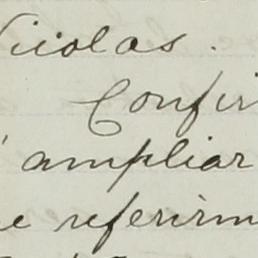 Nicolas.
Confir
ampliar
e referirm